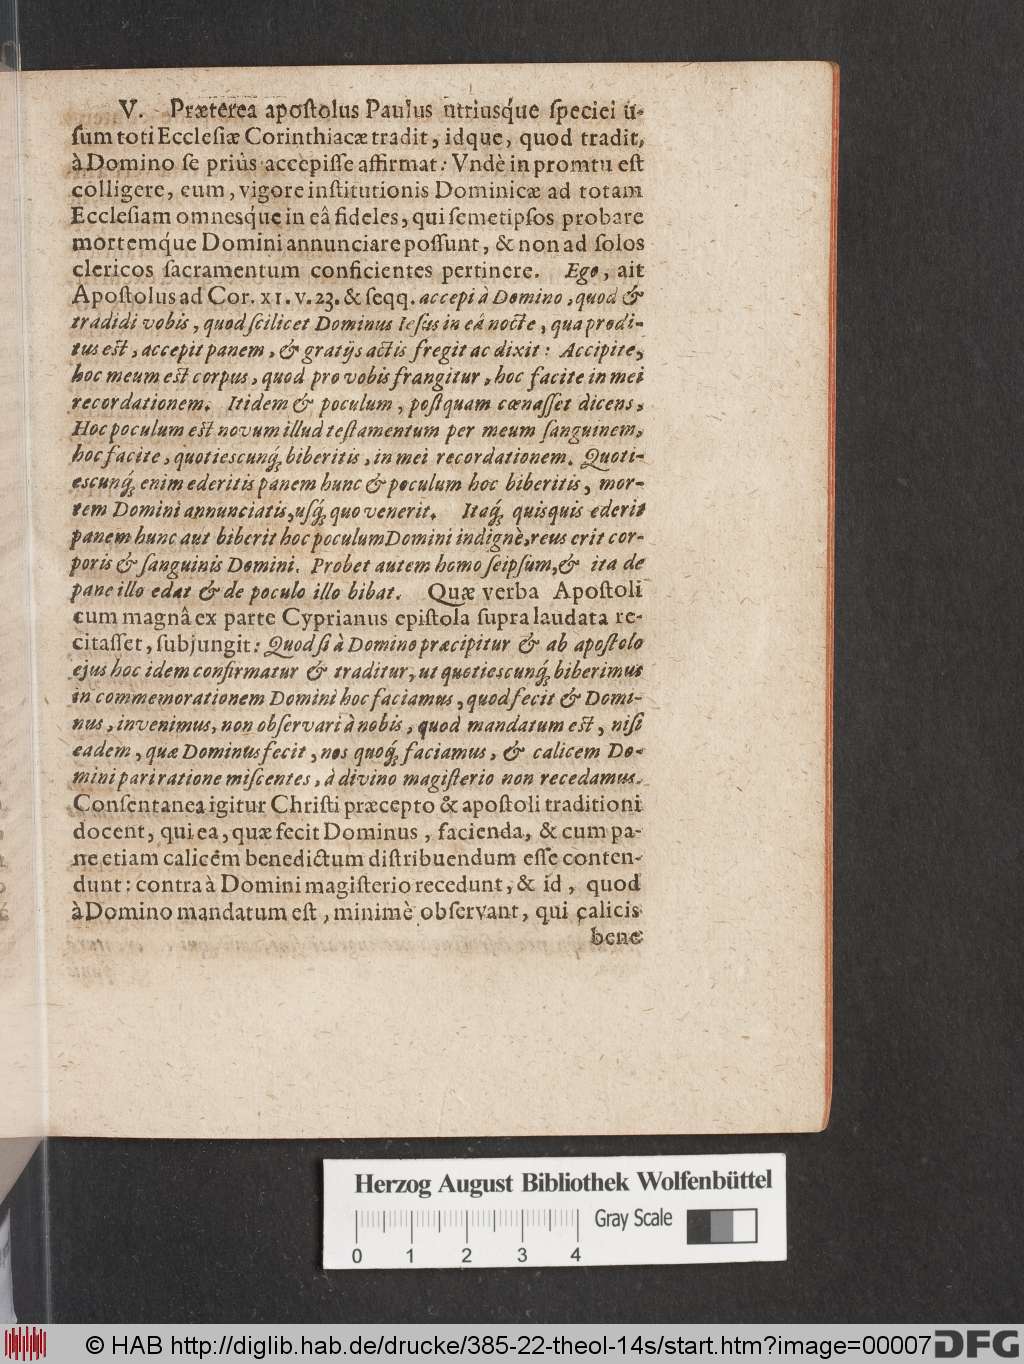 V. Præterea apostolus Paulus utriusq́ue speciei u-
ſum toti Eccleſiæ Corinthiacæ tradit, idque, quod tradit,
à Domino ſe priùs accepiſſe affirmat: Vndè in promtu eſt
colligere, eum, vigore inſtitutionis Dominicæ ad totam
Eccleſiam omnesq́ue in eâ fideles, qui ſemetipſos probare
mortemq́ue Domini annunciare poſſunt, & non ad ſolos
clericos ſacramentum conficientes pertinere. Ego, ait
Apoſtolus ad Cor. XI. v. 23. & ſeqq. accepi à Domino, quod &
tradidi vobis, quod ſcilicet Dominus Ieſus in eâ nocte, qua prodi-
tus eſt, accepit panem, & gratijs actis fregit ac dixit: Accipite,
hoc meum eſt corpus, quod pro vobis frangitur, hoc facite in mei
recordationem. Itidem & poculum, poſtquam cœnaſſet dicens,
Hoc poculum eſt novum illud teſtamentum per meum ſanguinem,
hoc facite, quotiescunq́; biberitis, in mei recordationem. Quoti-
escunq́; enim ederitis panem hunc & poculum hoc biberitis, mor-
tem Domini annunciatis, uſq́; quo venerit. Itaq́; quisquis ederit
panem hunc aut biberit hoc poculum Domini indignè, reus erit cor-
poris & ſanguinis Domini. Probet autem homo ſeipſum, & ita de
pane illo edat & de poculo illo bibat. Quæ verba Apoſtoli
cum magnâ ex parte Cyprianus epiſtola ſupra laudata re-
citaſſet, ſubjungit: Quod ſi à Domino præcipitur & ab apoſtolo
ejus hoc idem confirmatur & traditur, ut quotiescunq́; biberimus
in commemorationem Domini hoc faciamus, quod fecit & Domi-
nus, invenimus, non obſervari à nobis, quod mandatum eſt, niſi
eadem, quæ Dominus fecit, nos quoq́; faciamus, & calicem Do-
mini pari ratione miſcentes, à divino magiſterio non recedamus.
Conſentanea igitur Chriſti præcepto & apoſtoli traditioni
docent, qui ea, quæ fecit Dominus, facienda, & cum pa-
ne etiam calicem benedictum diſtribuendum eſſe conten-
dunt: contra à Domini magiſterio recedunt, & id, quod
à Domino mandatum eſt, minimè obſervant, qui calicis
bene
Herzog August Bibliothek Wolfenbüttel
Gray Scale
0 1 2 3 4
© HAB http://diglib.hab.de/drucke/385-22-theol-14s/start.htm?image=00007
DFG